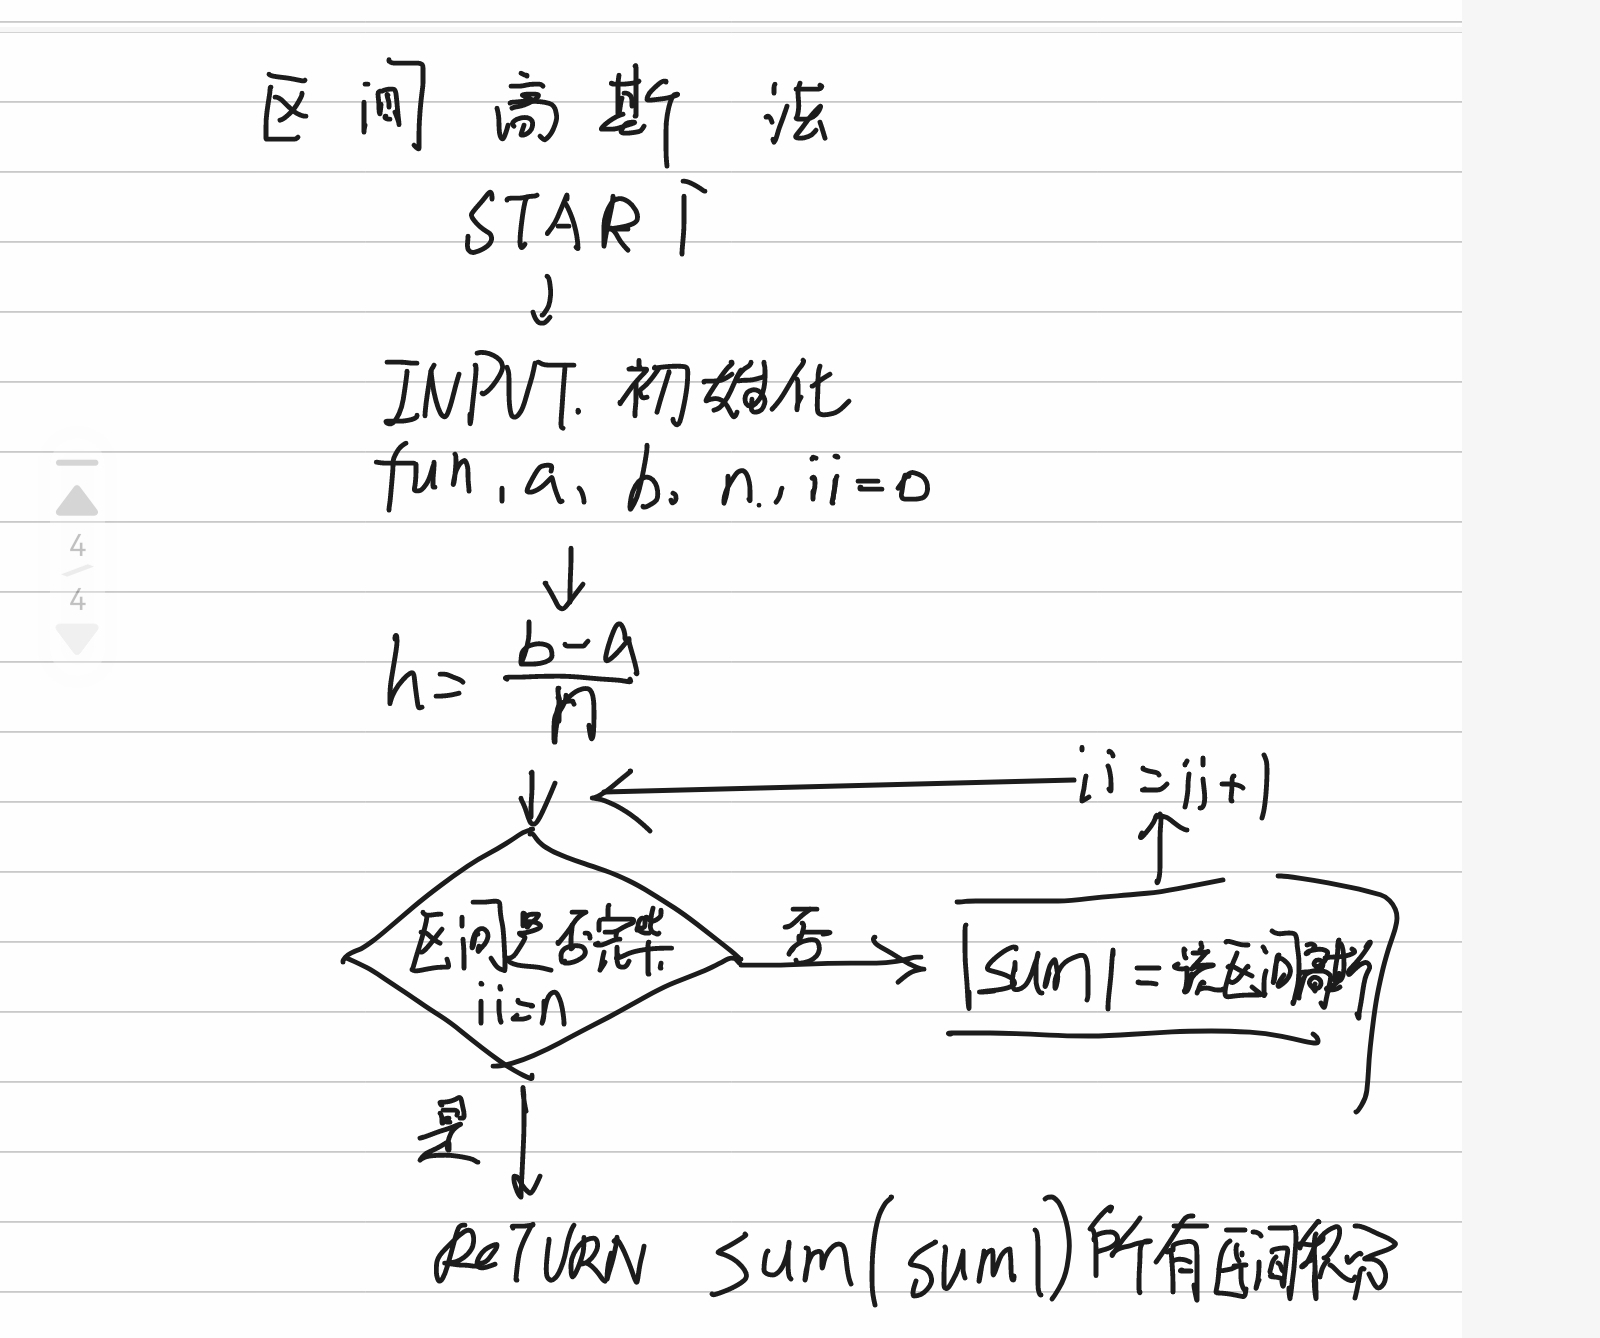 区间高斯法
START
INPUT. 初始化
fun, a, b, n, ii=0
h= b-a
n
ii=ii+1
区间是否完毕
ii=n
否
sum1=该区间高斯
是
ReTURN sum(sum1)所有区间积分
4
4